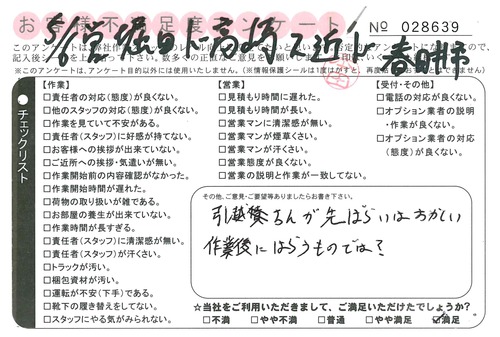 お客様不満足度アンケート
No 028639
5/6 宮堀日ト高崎 近
春日井市
このアンケートは弊社作
記入後シ
※このアンケートは、アンケート目的以外には使用いたしません。(※情報保護シールは1度はがすと、再度
チェックリスト
【作業】
□責任者の対応(態度)が良くない。
□他のスタッフの対応(態度)が良くない。
□作業を見ていて不安がある。
□責任者(スタッフ)に好感が持てない。
□お客様への挨拶が出来ていない。
□ご近所への挨拶・気遣いが無い。
□作業開始前の内容確認がなかった。
□作業開始時間が遅れた。
□荷物の取り扱いが雑である。
□お部屋の養生が出来ていない。
□作業時間が長すぎる。
□責任者(スタッフ)に清潔感が無い。
□責任者(スタッフ)が汗くさい。
□トラックが汚い。
□梱包資材が汚い。
□運転が不安(下手)である。
□靴下の履き替えをしてない。
□スタッフにやる気がみられない。
【営業】
□見積もり時間に遅れた。
□見積もり時間が長い。
□営業マンに清潔感が無い。
□営業マンが煙草くさい。
□営業マンが汗くさい。
□営業態度が良くない。
□営業の説明と作業が一致してない。
【受付・その他】
□電話の対応が良くない。
□オプション業者の説明
・作業が良くない。
□オプション業者の対応
(態度)が良くない。
その他、ご意見・ご要望等ありましたらお書き下さい。
引越賃きんが先ばらいはおかしい
作業後にはらうものでは?
☆当社をご利用いただきまして、ご満足いただけたでしょうか?
□不満 □やや不満 □普通 □やや満足 ☑満足